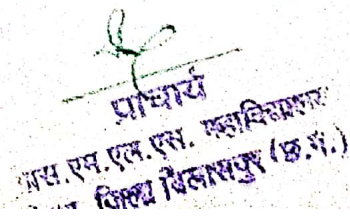 प्राचार्य
एस.एम.एल.एस. महाविद्यालय
जिला बिलासपुर (छ.ग.)